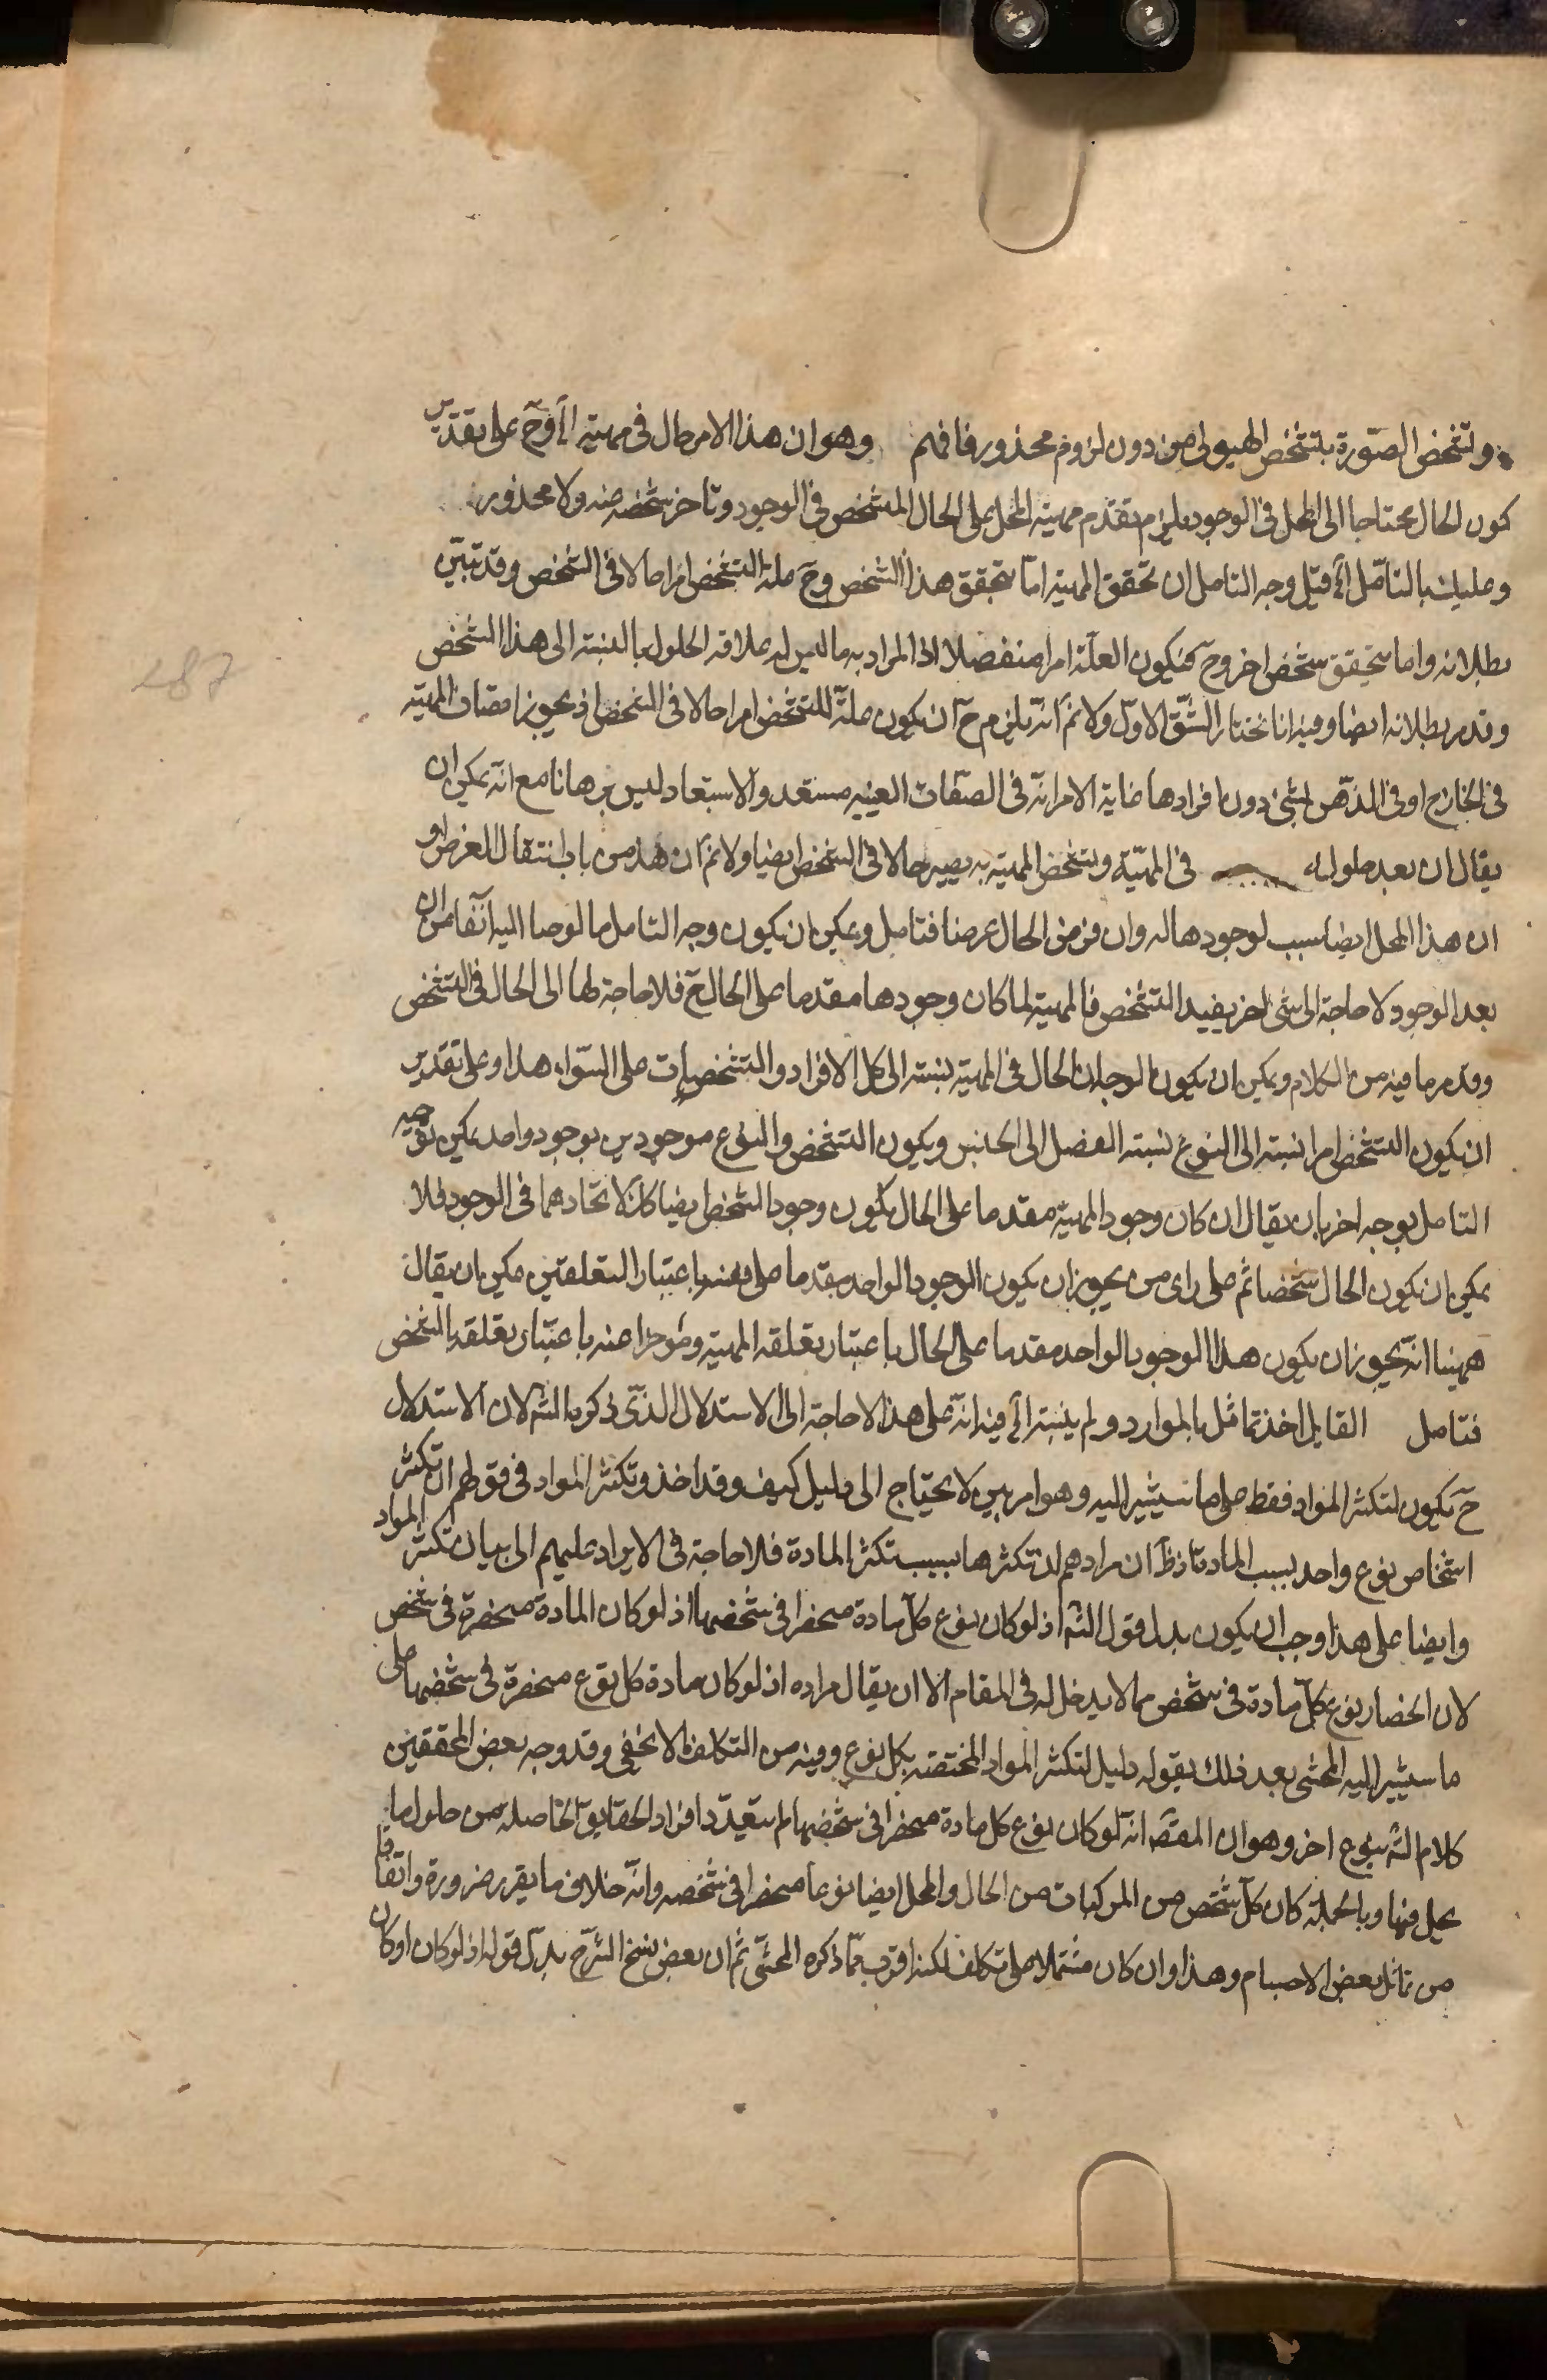 وتشخص الصّورة بتشخص الهيولى من دون لزوم محذور فافهم وهو ان هذا الامر حال فى مهيته الخ وحّ على تقدير
كون الحال محتاجا الى المحل فى الوجود يلزم تقدّم مهيته المحل على الحال المشخص فى الوجود وتاخر تشخصه عنه ولا محذور
وعليك بالتامّل الخ قيل وجه التامل ان تحقق المهية امّا بتحقق هذا الشخص وحّ علة التشخص امرا حالا فى الشخص وقد تبيّن
بطلانه واما بتحقق شخص اخر وحّ فتكون العلّة امرا منفصلا اذ المراد به ما ليس له علاقة الحلول بالنسبة الى هذا الشخص
وقد مر بطلانه ايضا وفيه انا نختار الشّق الاوّل ولا نمّ انّه يلزم حّ ان يكون علّة للتشخص امرا حالا فى الشخص اذ يجوز اتصاف المهيّة
فى الخارج او فى الذّهن بشئ دون افرادها غاية الامر انّه فى الصّفات العينيه مستبعد والاستبعاد ليس برهانا مع انّه يمكن ان
يقال ان بعد حلوله فى المهيّة وتشخص المهية به يصير حالا فى الشخص ايضا ولا نمّ ان هذا من باب انتقال العرض او
ان هذا المحل ايضا سبب لوجودها له وان فرض الحال عرضا فتامل ويمكن ان يكون وجه التامل ما لوحنا اليه آنفا من ان
بعد الوجود لا حاجة الى شئ اخر يفيد التشخص فالمهية لما كان وجودها مقدما على الحال حّ فلا حاجة لها الى الحال فى التشخص
وقد مر ما فيه من الكلام ويمكن ان يكون الوجه ان الحال فى المهية نسبته الى كل الافراد والتشخصات على السّواء هذا وعلى تقدير
ان يكون التشخص امرا نسبته الى النوع نسبته الفصل الى الجنس ويكون التشخص والنوع موجودين بوجود واحد يمكن توجيه
التامل بوجه اخر بان يقال ان كان وجود المهية مقدما على الحال يكون وجود الشخص ايضا كك لاتحادهما فى الوجود فلا
يمكن ان يكون الحال شخصا ثم على راى من يجوز ان يكون الوجود الواحد مقدما على نفسه باعتبار التعلقين يمكن ان يقال
ههنا انّه يجوز ان يكون هذا الوجود الواحد مقدما على الحال باعتبار تعلقه المهية ومؤخرا عنه باعتبار تعلقه بالشخص
فتامل القايل اخذ تماثل بالموارد ولم ينسبه الخ فيه انّه على هذا لا حاجة الى الاستدلال الذّى ذكره الش لان الاستدلال
حّ يكون لتكثر المواد فقط على ما سيشير اليه وهو امر بين لا يحتاج الى دليل كيف وقد اخذ وتكثر المواد فى قولهم ان تكثر
اشخاص نوع واحد بسبب المادة اذ ظ ان مرادهم ان تكثرها بسبب تكثر المادة فلا حاجة فى الايراد عليهم الى بيان تكثر المواد
وايضا على هذا وجب ان يكون بدل قول الش اذ لو كان نوع كل مادة منحصرا فى شخصها اذ لو كان المادة منحصرة فى شخص
لان انحصار نوع كلّ مادة فى شخص مما لا يدخل له فى المقام الا ان يقال مراده اذ لو كان مادة كل نوع منحصرة فى شخصها على
ما سيشير اليه المحشى بعد ذلك بقوله دليل لتكثر المواد المختصة بكل نوع وفيه من التكلف ما لا يخفى وقد وجه بعض المحققين
كلام الش بنوع اخر وهو ان المقصّ انّه لو كان نوع كل مادة منحصرا فى شخصها لم يتعدّد افراد الحقايق الحاصلة من حلول ما
يحل فيها وبالجملة كان كلّ شخص من المركبات من الحال والمحل ايضا نوعا منحصرا فى شخصه وانّه خلاف ما يقرر ضرورة واتفاقا
من تماثل بعض الاجسام وهذا وان كان مشتملا على تكلف لكنه اقرب ممّا ذكره المحشّى ثم ان بعض نسخ الشرح بدل قوله اذ لو كان او كان
487